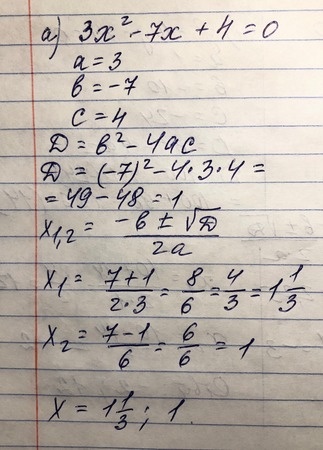 а) 3x² - 7x + 4 = 0
a = 3
b = -7
c = 4
D = b² - 4ac
D = (-7)² - 4·3·4 =
= 49 - 48 = 1
x₁,₂ = (-b ± √D)/(2a)
x₁ = (7+1)/(2·3) = 8/6 = 4/3 = 1 1/3
x₂ = (7-1)/6 = 6/6 = 1
x = 1 1/3; 1.